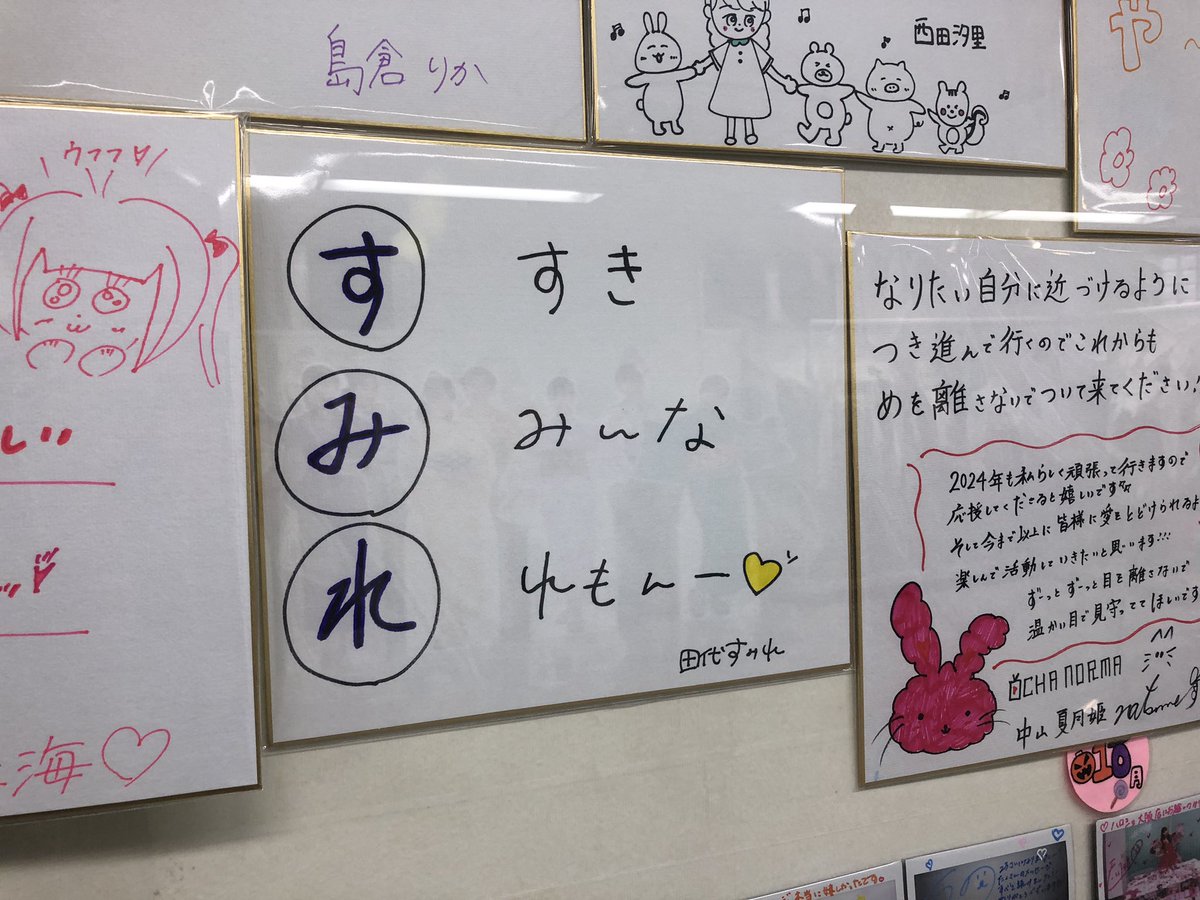 島倉りか
西田汐里
や
ウフフ
す すき
み みんな
れ れもんー
田代すみれ
なりたい自分に近づけるように
つき進んで行くのでこれからも
めを離さないでついて来てください!
2024年も私らしく頑張って行きますので
応援してくださると嬉しいです
そして今まで以上に皆様に愛をとどけられるよ
楽しんで活動していきたいと思います!!!
ずーっとずーっと目を離さないで
温かい目で見守っててほしいです
OCHA NORMA
中山夏月姫
海
10月